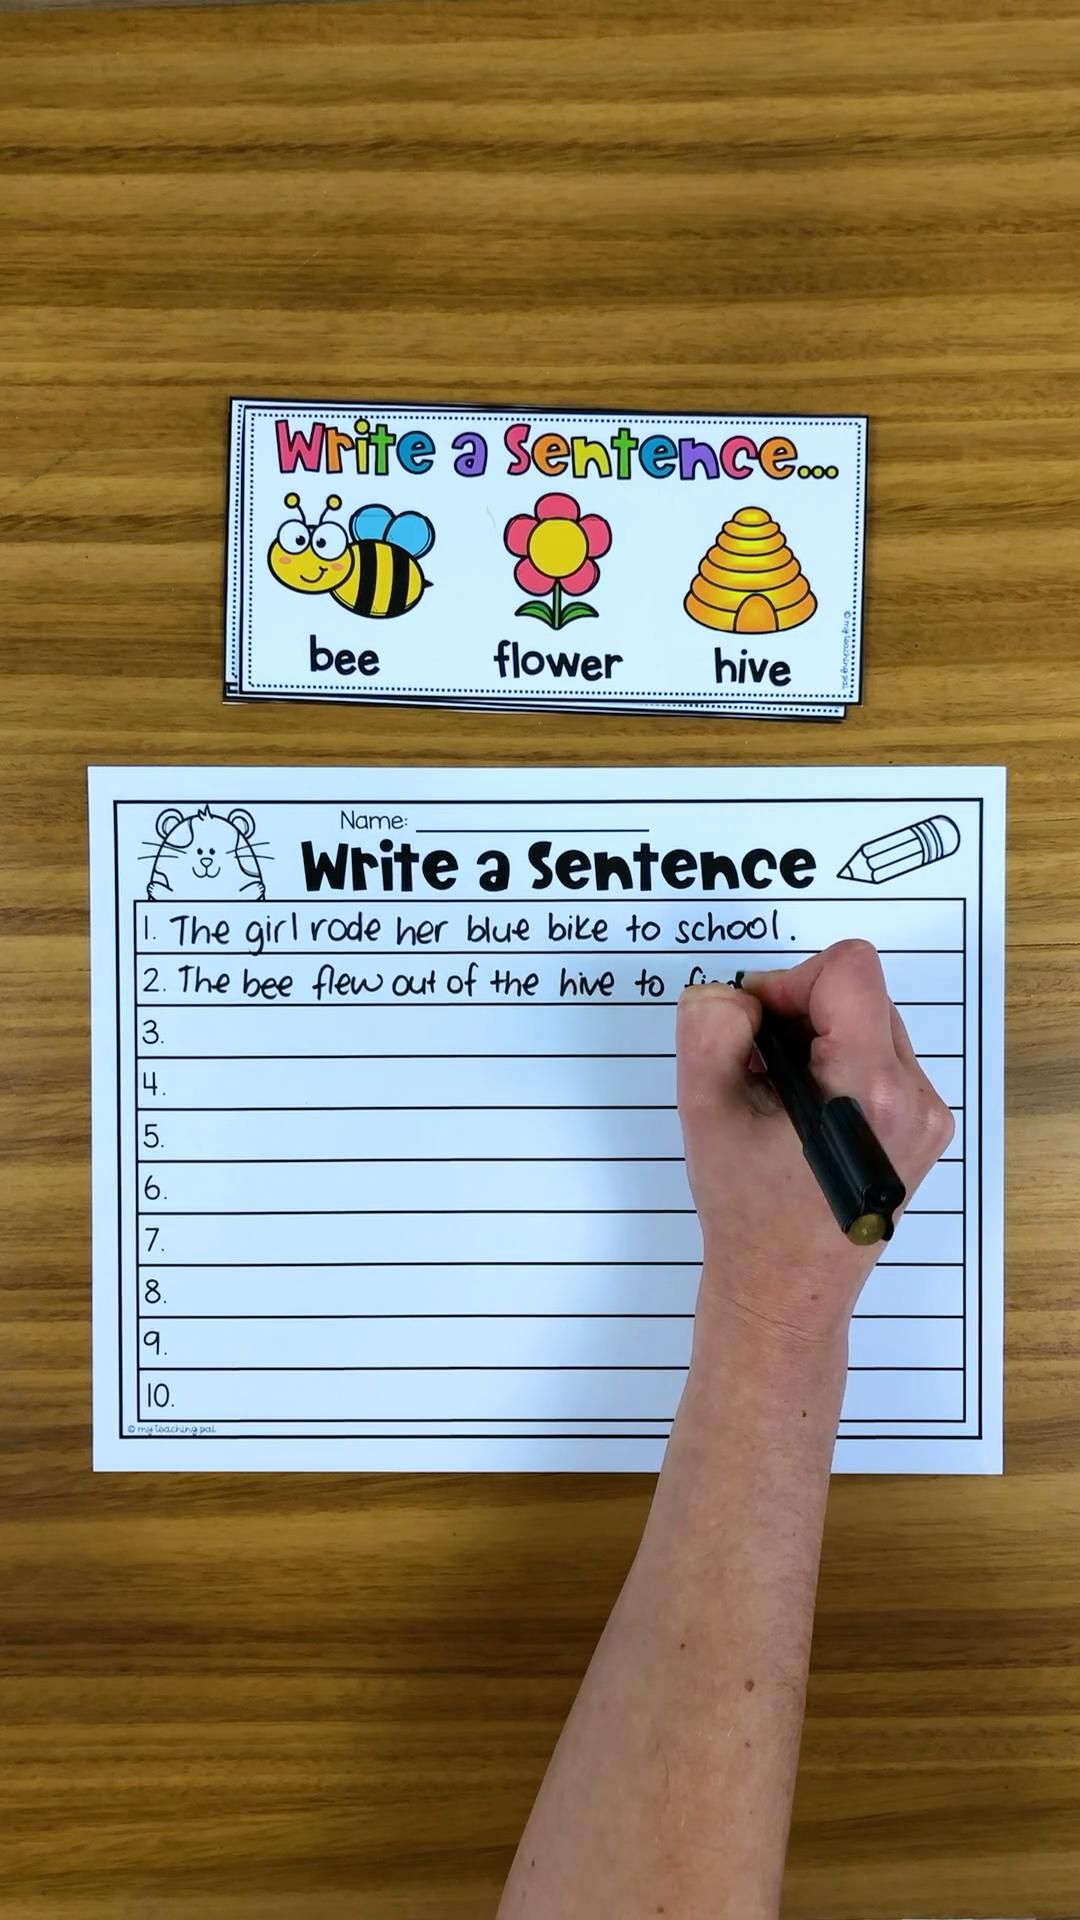 Write a Sentence...
bee flower hive
© my teaching pal
Name:
Write a Sentence
1. The girl rode her blue bike to school.
2. The bee flew out of the hive to find
3.
4.
5.
6.
7.
8.
9.
10.
© my teaching pal